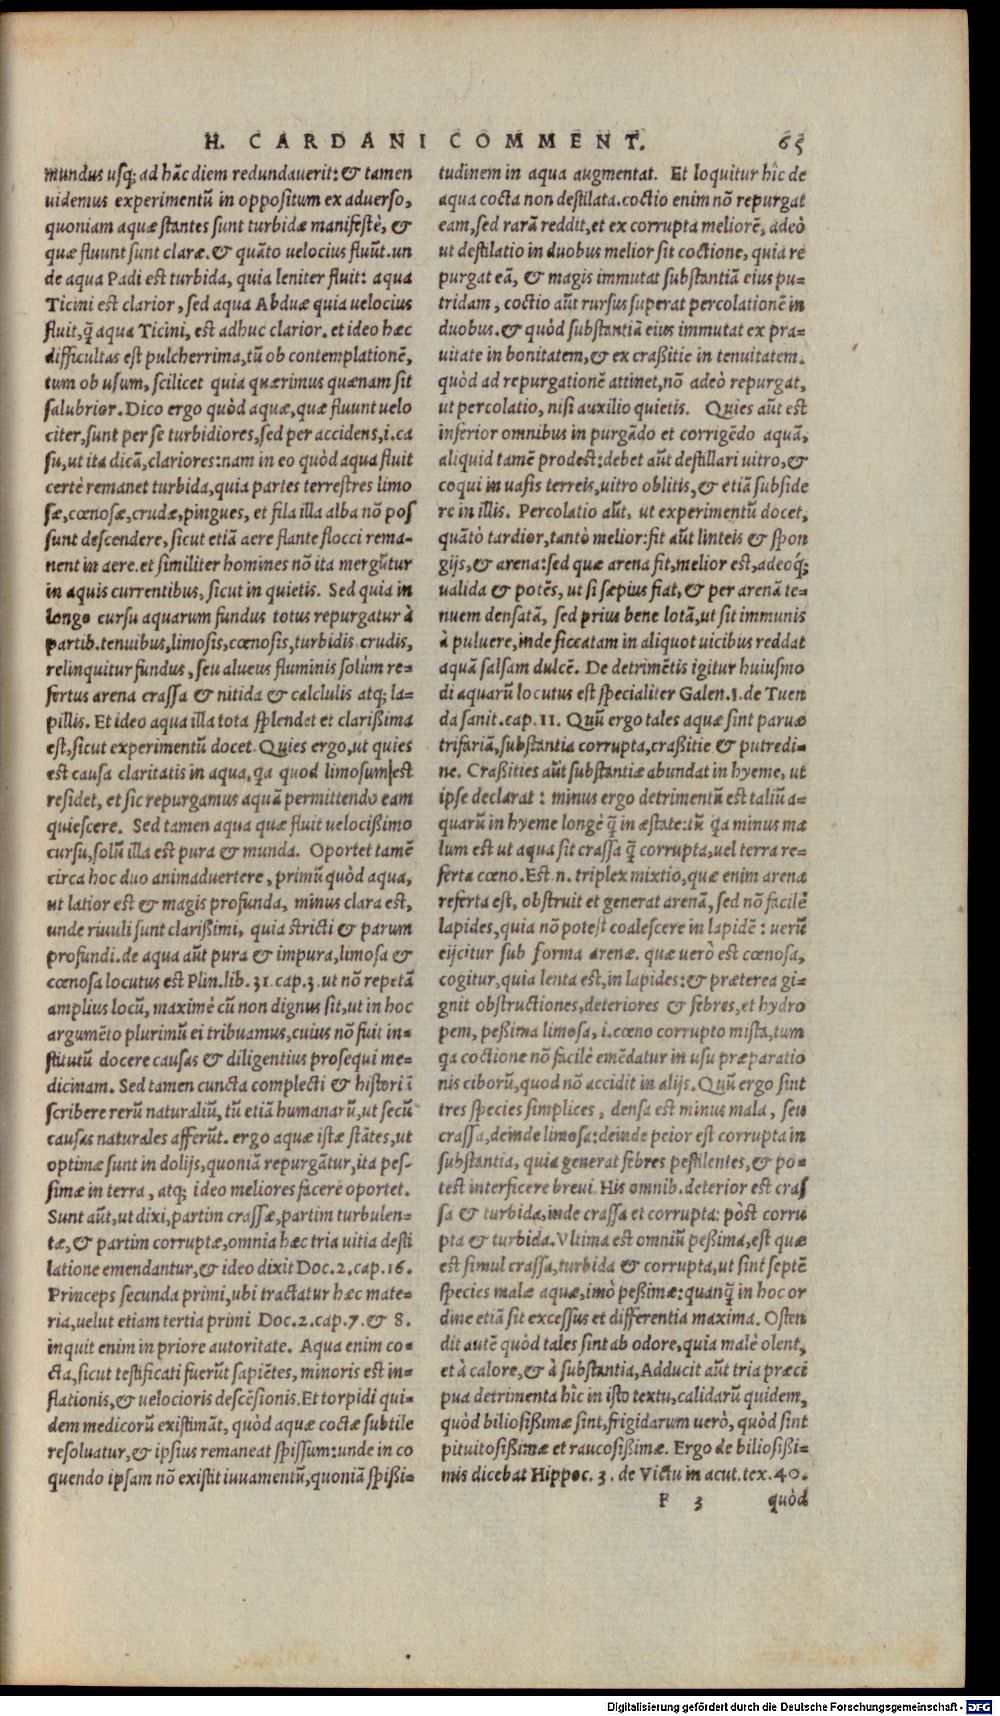 H. CARDANI COMMENT. 65
mundus usq; ad hãc diem redundauerit: & tamen
uidemus experimentũ in oppositum ex aduerso,
quoniam aquæ stantes sunt turbidæ manifestè, &
quæ fluunt sunt claræ. & quãto uelocius fluũt. un
de aqua Padi est turbida, quia leniter fluit: aqua
Ticini est clarior, sed aqua Abduæ quia uelocius
fluit, q̃ aqua Ticini, est adhuc clarior. et ideo hæc
difficultas est pulcherrima, tũ ob contemplationẽ,
tum ob usum, scilicet quia quærimus quænam sit
salubrior. Dico ergo quòd aquæ, quæ fluunt uelo
citer, sunt per se turbidiores, sed per accidens, i. ca
su, ut ita dicã, clariores: nam in eo quòd aqua fluit
certè remanet turbida, quia partes terrestres limo
sæ, cœnosæ, crudæ, pingues, et fila illa alba nõ pos
sunt descendere, sicut etiã aere flante flocci rema-
nent in aere. et similiter homines nõ ita mergũtur
in aquis currentibus, sicut in quietis. Sed quia in
longo cursu aquarum fundus totus repurgatur à
partib. tenuibus, limosis, cœnosis, turbidis crudis,
relinquitur fundus, seu alueus fluminis solùm re-
fertus arena crassa & nitida & calclulis atq; la-
pillis. Et ideo aqua illa tota splendet et clarißima
est, sicut experimentũ docet. Quies ergo, ut quies
est causa claritatis in aqua, q̃a quod limosum est
residet, et sic repurgamus aquã permittendo eam
quiescere. Sed tamen aqua quæ fluit uelocißimo
cursu, solũ illa est pura & munda. Oportet tamẽ
circa hoc duo animaduertere, primũ quòd aqua,
ut latior est & magis profunda, minus clara est,
unde riuuli sunt clarißimi, quia stricti & parum
profundi. de aqua aũt pura & impura, limosa &
cœnosa locutus est Plin. lib. 31. cap. 3. ut nõ repetã
amplius locũ, maximè cũ non dignus sit, ut in hoc
argumẽto plurimũ ei tribuamus, cuius nõ fuit in-
stitutũ docere causas & diligentius prosequi me-
dicinam. Sed tamen cuncta complecti & histori ĩ
scribere rerũ naturaliũ, tũ etiã humanarũ, ut secũ
causas naturales afferũt. ergo aquæ istæ stãtes, ut
optimæ sunt in dolijs, quoniã repurgãtur, ita pes-
simæ in terra, atq; ideo meliores facere oportet.
Sunt aũt, ut dixi, partim crassæ, partim turbulen-
tæ, & partim corruptæ, omnia hæc tria uitia desti
latione emendantur, & ideo dixit Doc. 2. cap. 16.
Princeps secunda primi, ubi tractatur hæc mate-
ria, uelut etiam tertia primi Doc. 2. cap. 7. & 8.
inquit enim in priore autoritate. Aqua enim co-
cta, sicut testificati fuerũt sapiẽtes, minoris est in-
flationis, & uelocioris descẽsionis. Et torpidi qui-
dem medicorũ existimãt, quòd aquæ coctæ subtile
resoluatur, & ipsius remaneat spissum: unde in co
quendo ipsam nõ existit iuuamentũ, quoniã spißi-
tudinem in aqua augmentat. Et loquitur hîc de
aqua cocta non destilata. coctio enim nõ repurgat
eam, sed rarã reddit, et ex corrupta meliorẽ, adeò
ut destilatio in duobus melior sit coctione, quia re
purgat eã, & magis immutat substantiã eius pu-
tridam, coctio aũt rursus superat percolationẽ in
duobus. & quòd substantiã eius immutat ex pra-
uitate in bonitatem, & ex craßitie in tenuitatem.
quòd ad repurgationẽ attinet, nõ adeò repurgat,
ut percolatio, nisi auxilio quietis. Quies aũt est
inferior omnibus in purgãdo et corrigẽdo aquã,
aliquid tamẽ prodest: debet aũt destillari uitro, &
coqui in uasis terreis, uitro oblitis, & etiã subside
re in illis. Percolatio aũt, ut experimentũ docet,
quãtò tardior, tantò melior: fit aũt linteis & spon
gijs, & arena: sed quæ arena fit, melior est, adeoq́;
ualida & potẽs, ut si sæpius fiat, & per arenã te-
nuem densatã, sed prius bene lotã, ut sit immunis
à puluere, inde siccatam in aliquot uicibus reddat
aquã salsam dulcẽ. De detrimẽtis igitur huiusmo
di aquarũ locutus est specialiter Galen. 1. de Tuen
da sanit. cap. 11. Quũ ergo tales aquæ sint paruæ
trifariã, substantia corrupta, craßitie & putredi-
ne. Craßities aũt substantiæ abundat in hyeme, ut
ipse declarat: minus ergo detrimentũ est taliũ a-
quarũ in hyeme longè q̃ in æstate: tũ q̃a minus ma
lum est ut aqua sit crassa q̃ corrupta, uel terra re-
ferta cœno. Est. n. triplex mixtio, quæ enim arena
referta est, obstruit et generat arenã, sed nõ facilè
lapides, quia nõ potest coalescere in lapidẽ: uerũ
eijcitur sub forma arenæ. quæ uerò est cœnosa,
cogitur, quia lenta est, in lapides: & præterea gi-
gnit obstructiones, deteriores & febres, et hydro
pem, peßima limosa, i. cœno corrupto mista, tum
q̃a coctione nõ facilè emẽdatur in usu præparatio
nis ciborũ, quod nõ accidit in alijs. Quũ ergo sint
tres species simplices, densa est minus mala, seu
crassa, deinde limosa: deinde peior est corrupta in
substantia, quia generat febres pestilentes, & po-
test interficere breui. His omnib. deterior est cras
sa & turbida, inde crassa et corrupta: pòst corru
pta & turbida. Vltima est omniũ peßima, est quæ
est simul crassa, turbida & corrupta, ut sint septẽ
species malæ aquæ, imò peßimæ: quanq̃ in hoc or
dine etiã sit excessus et differentia maxima. Osten
dit autẽ quòd tales sint ab odore, quia malè olent,
et à calore, & à substantia, Adducit aũt tria præci
pua detrimenta hîc in isto textu, calidarũ quidem,
quòd biliosißimæ sint, frigidarum uerò, quòd sint
pituitosißimæ et raucosißimæ. Ergo de biliosißi-
mis dicebat Hippoc. 3. de Victu in acut. tex. 40.
F 3 quòd
Digitalisierung gefördert durch die Deutsche Forschungsgemeinschaft - DFG